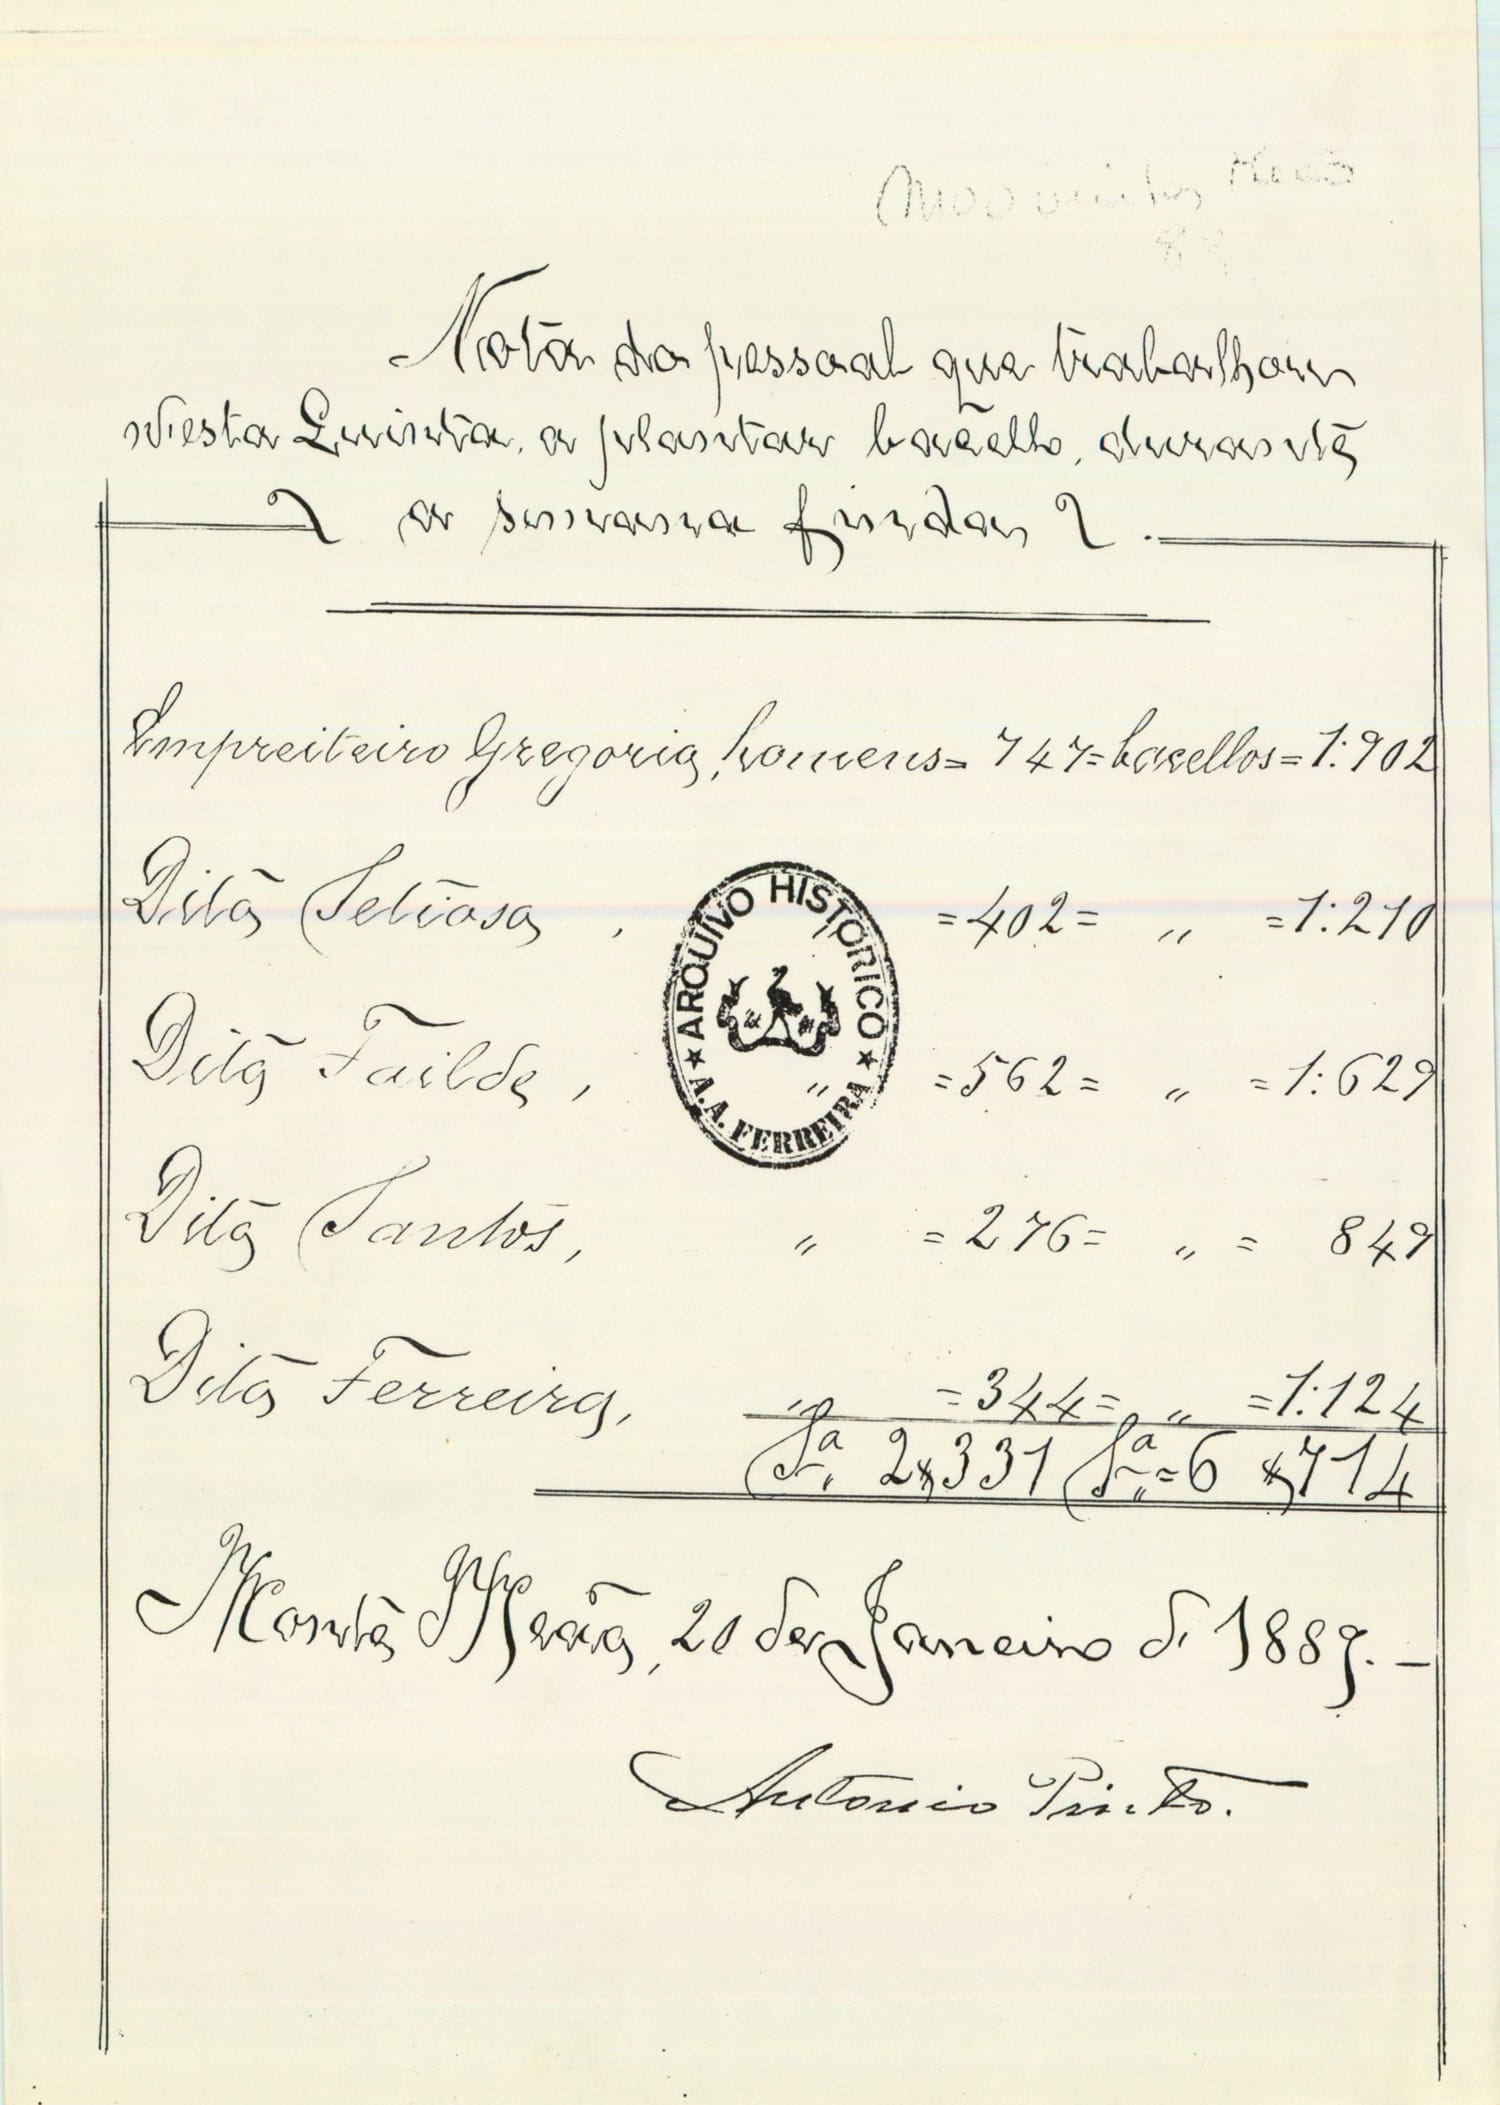 Nota do pessoal que trabalhou
nesta Quinta, a plantar bacello, durante
a semana finda
Empreiteiro Gregorio, homens = 747 = bacellos = 1:902
Dito Seixosa, = 402 = „ = 1:210
Dito Failde, „ = 562 = „ = 1:629
Dito Santos, „ = 276 = „ = 849
Dito Ferreira, „ = 344 = „ = 1:124
Sª 2$331 Sª = 6$714
Monte Meão, 20 de Janeiro de 1889.
Antonio Pinto.
ARQUIVO HISTORICO
★ A. A. FERREIRA ★